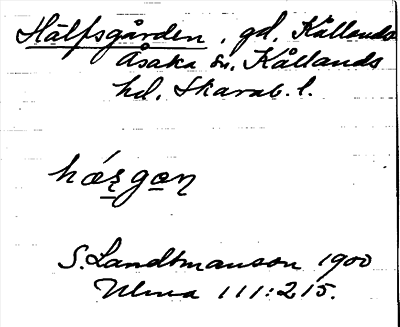 Hälfsgården, gd, Kållands
Åsaka sn. Kållands
hd. Skarab. l.
S. Landtmanson 1900
Ulma 111:215.